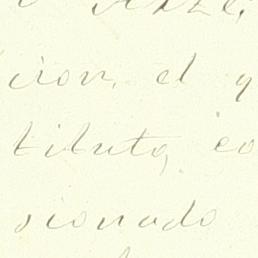 cion, el q
tituto, co
sionado